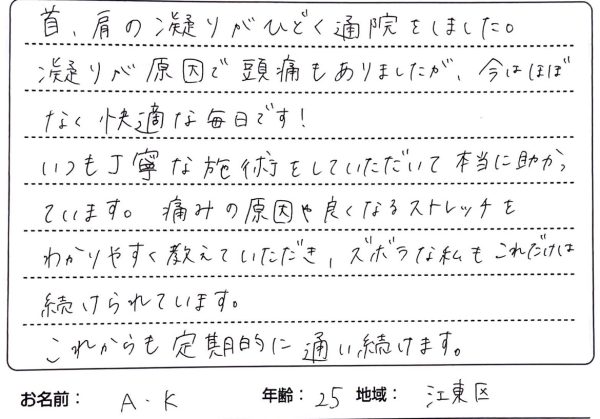 首、肩の凝りがひどく通院をしました。
凝りが原因で頭痛もありましたが、今はほぼ
なく快適な毎日です!
いつも丁寧な施術をしていただいて本当に助かっ
ています。痛みの原因や良くなるストレッチを
わかりやすく教えていただき、ズボラな私もこれだけは
続けられています。
これからも定期的に通い続けます。
お名前: A・K 年齢: 25 地域: 江東区